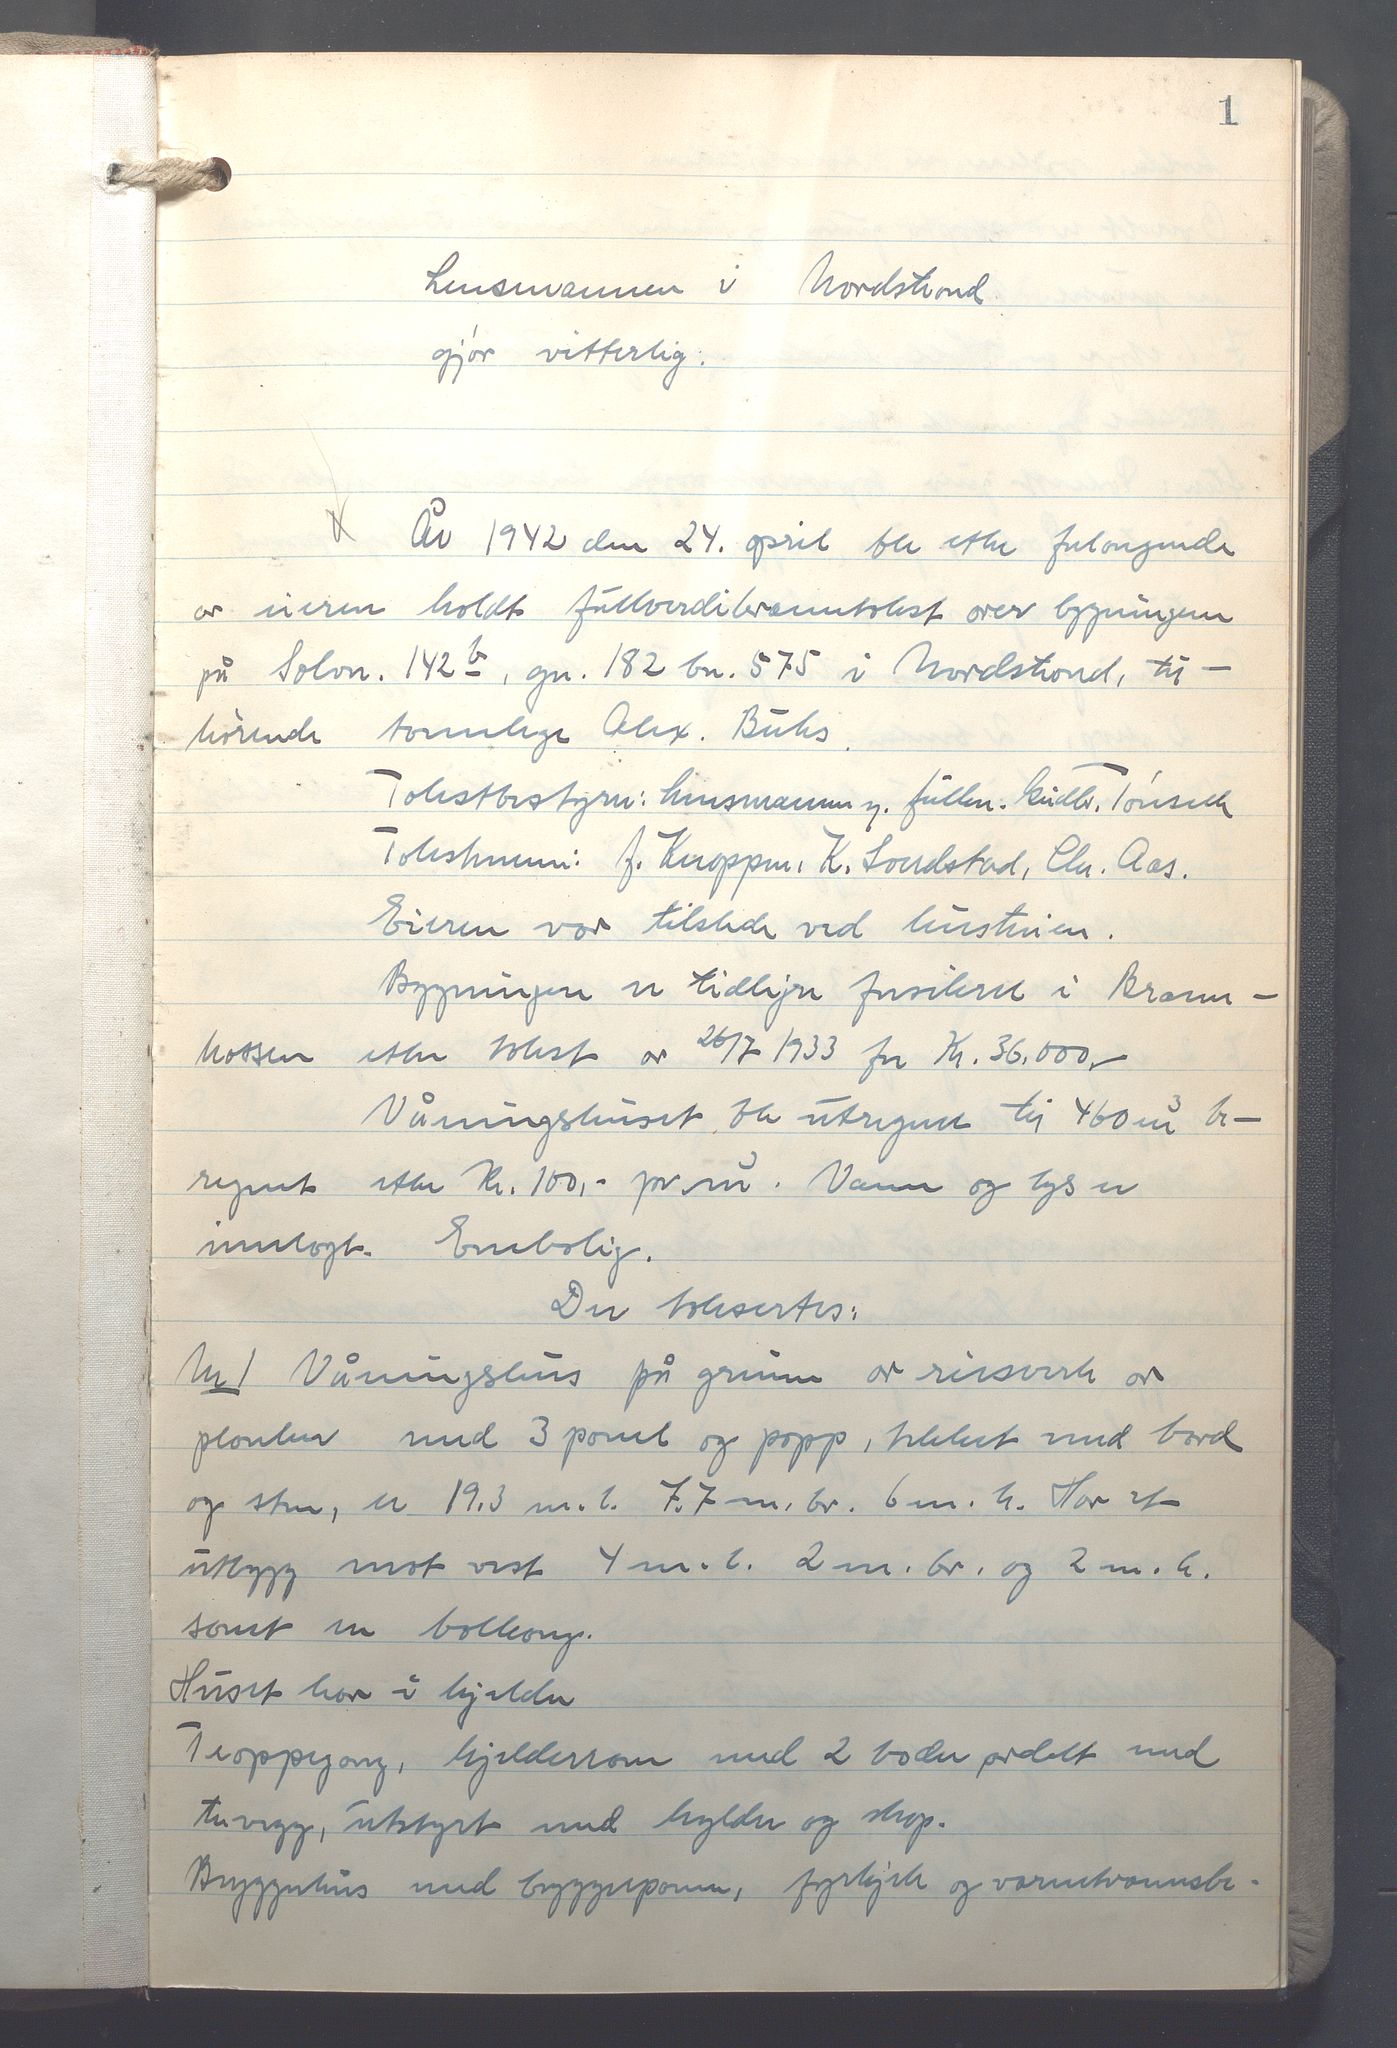 1
Lensmannen i Nordstrand
gjør vitterlig:
År 1942 den 24. april ble etter forlangende
av eieren holdt fullverdibranntakst over bygningen
på Solvn. 142b, gn. 182 bn. 575 i Nordstrand, til-
hørende tannlege Alex. Buhs.
Takstbestyrer: lensmannen v. fullm. Gudbr. Tønseth
Takstmenn: J. Knoppen, K. Sandstad, Chr. Aas.
Eieren var tilstede ved hustruen.
Bygningen er tidligere forsikret i Brann-
kassen etter takst av 26/7 1933 for Kr. 36.000,-
Våningshuset ble utregnet til 460 m³ be-
regnet etter Kr. 100,- pr. m³. Vann og lys er
innlagt. Enebolig.
Der taksertes:
Nr 1 Våningshus på grunn av reisverk av
planker med 3 panel og papp, tekket med bord
og sten, er 19.3 m. l. 7.7 m. br. 6 m. h. Har et
utbygg mot vest 4 m. l. 2 m. br. og 2 m. h.
samt en balkong.
Huset har i kjelder
Treoppgang, kjelderrom med 2 boder, avdelt med
trevegg, utstyrt med hylder og skap.
Bryggerhus med bryggepanne, fyrkjele og varmtvannsbe-